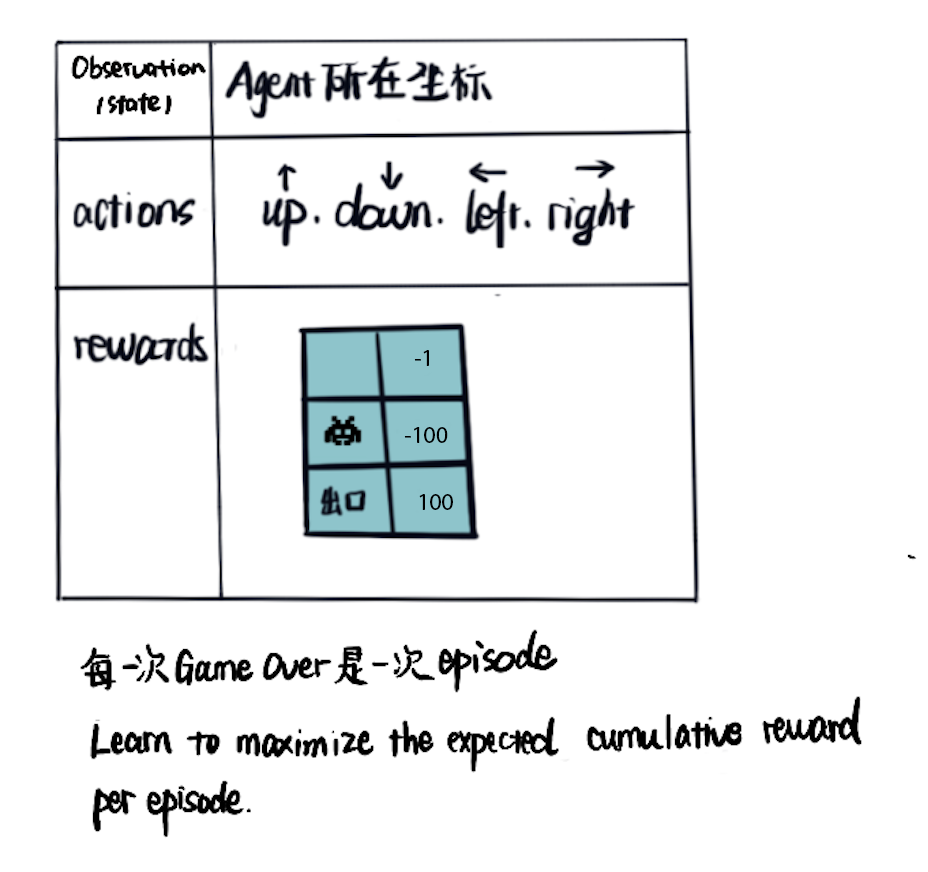 Observation
(state)
Agent 所在坐标
actions
↑ ↓ ← →
up. down. left. right
rewards
-1
-100
出口 100
每一次 Game Over 是一次 episode
Learn to maximize the expected cumulative reward
per episode.